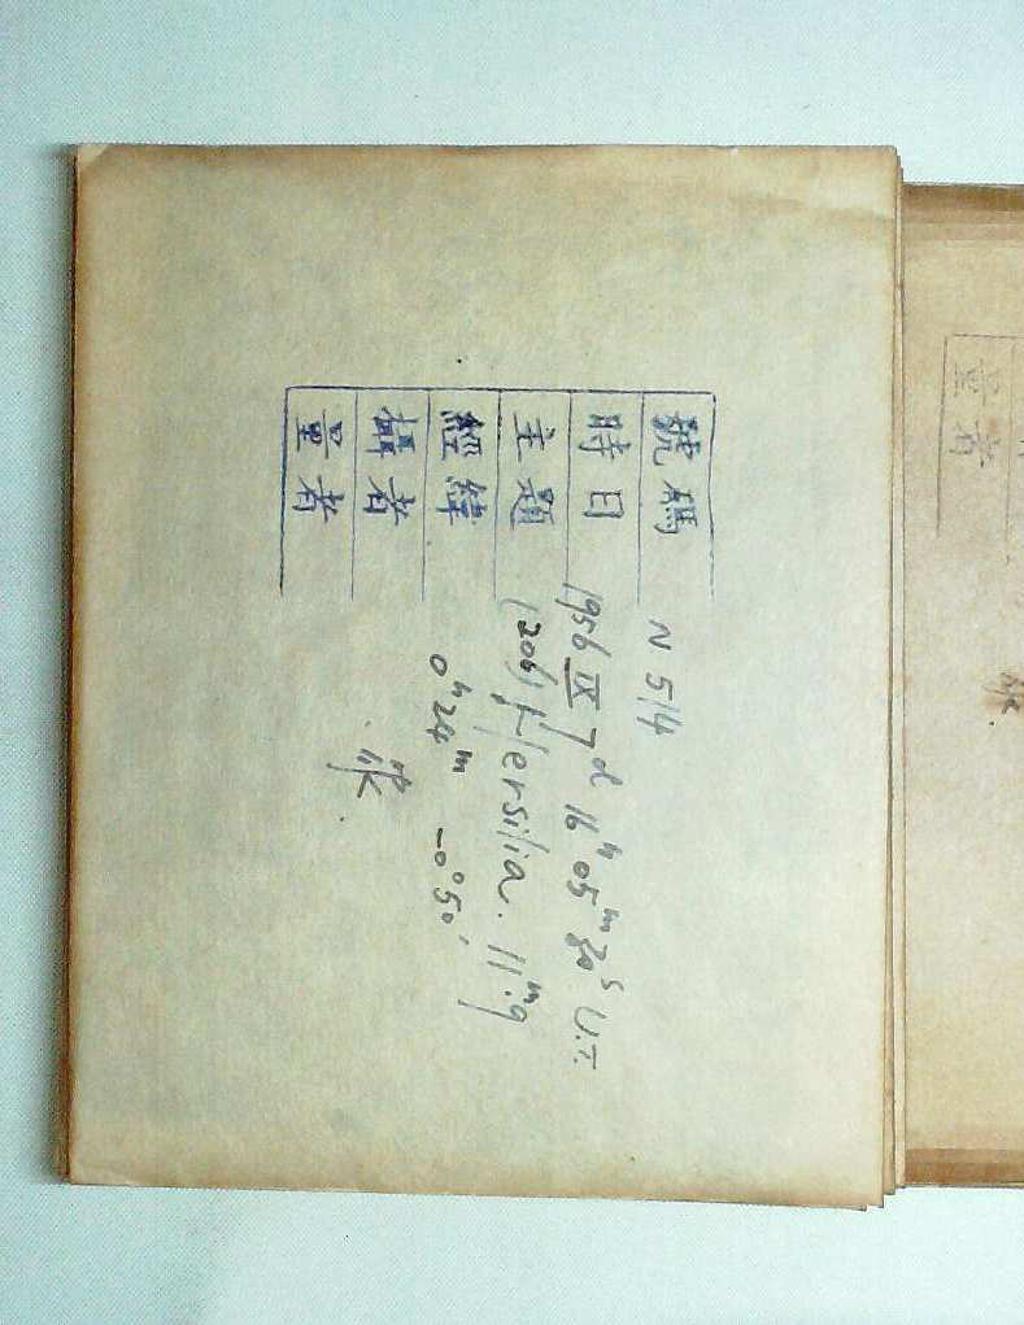 號碼 N 514
時日 1956 IX 7ᵈ 16ʰ 05ᵐ 30ˢ U.T.
主題 (206) Hersilia. 11ᵐ.9
經緯 0ʰ24ᵐ −0°50′
攝者
量者
量者